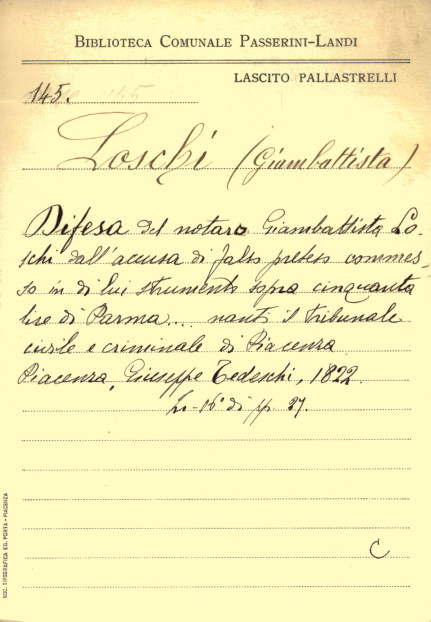 BIBLIOTECA COMUNALE PASSERINI-LANDI
LASCITO PALLASTRELLI
145. 145
Loschi (Giambattista)
Difesa del notaro Giambattista Lo-
schi dall'accusa di falso preteso commes-
so in di lui strumento sopra cinquanta
lire di Parma.... nanti il tribunale
civile e criminale di Piacenza
Piacenza, Giuseppe Tedeschi, 1822.
In-16° di pp. 27.
C
SOC. TIPOGRAFICA ED. PORTA - PIACENZA